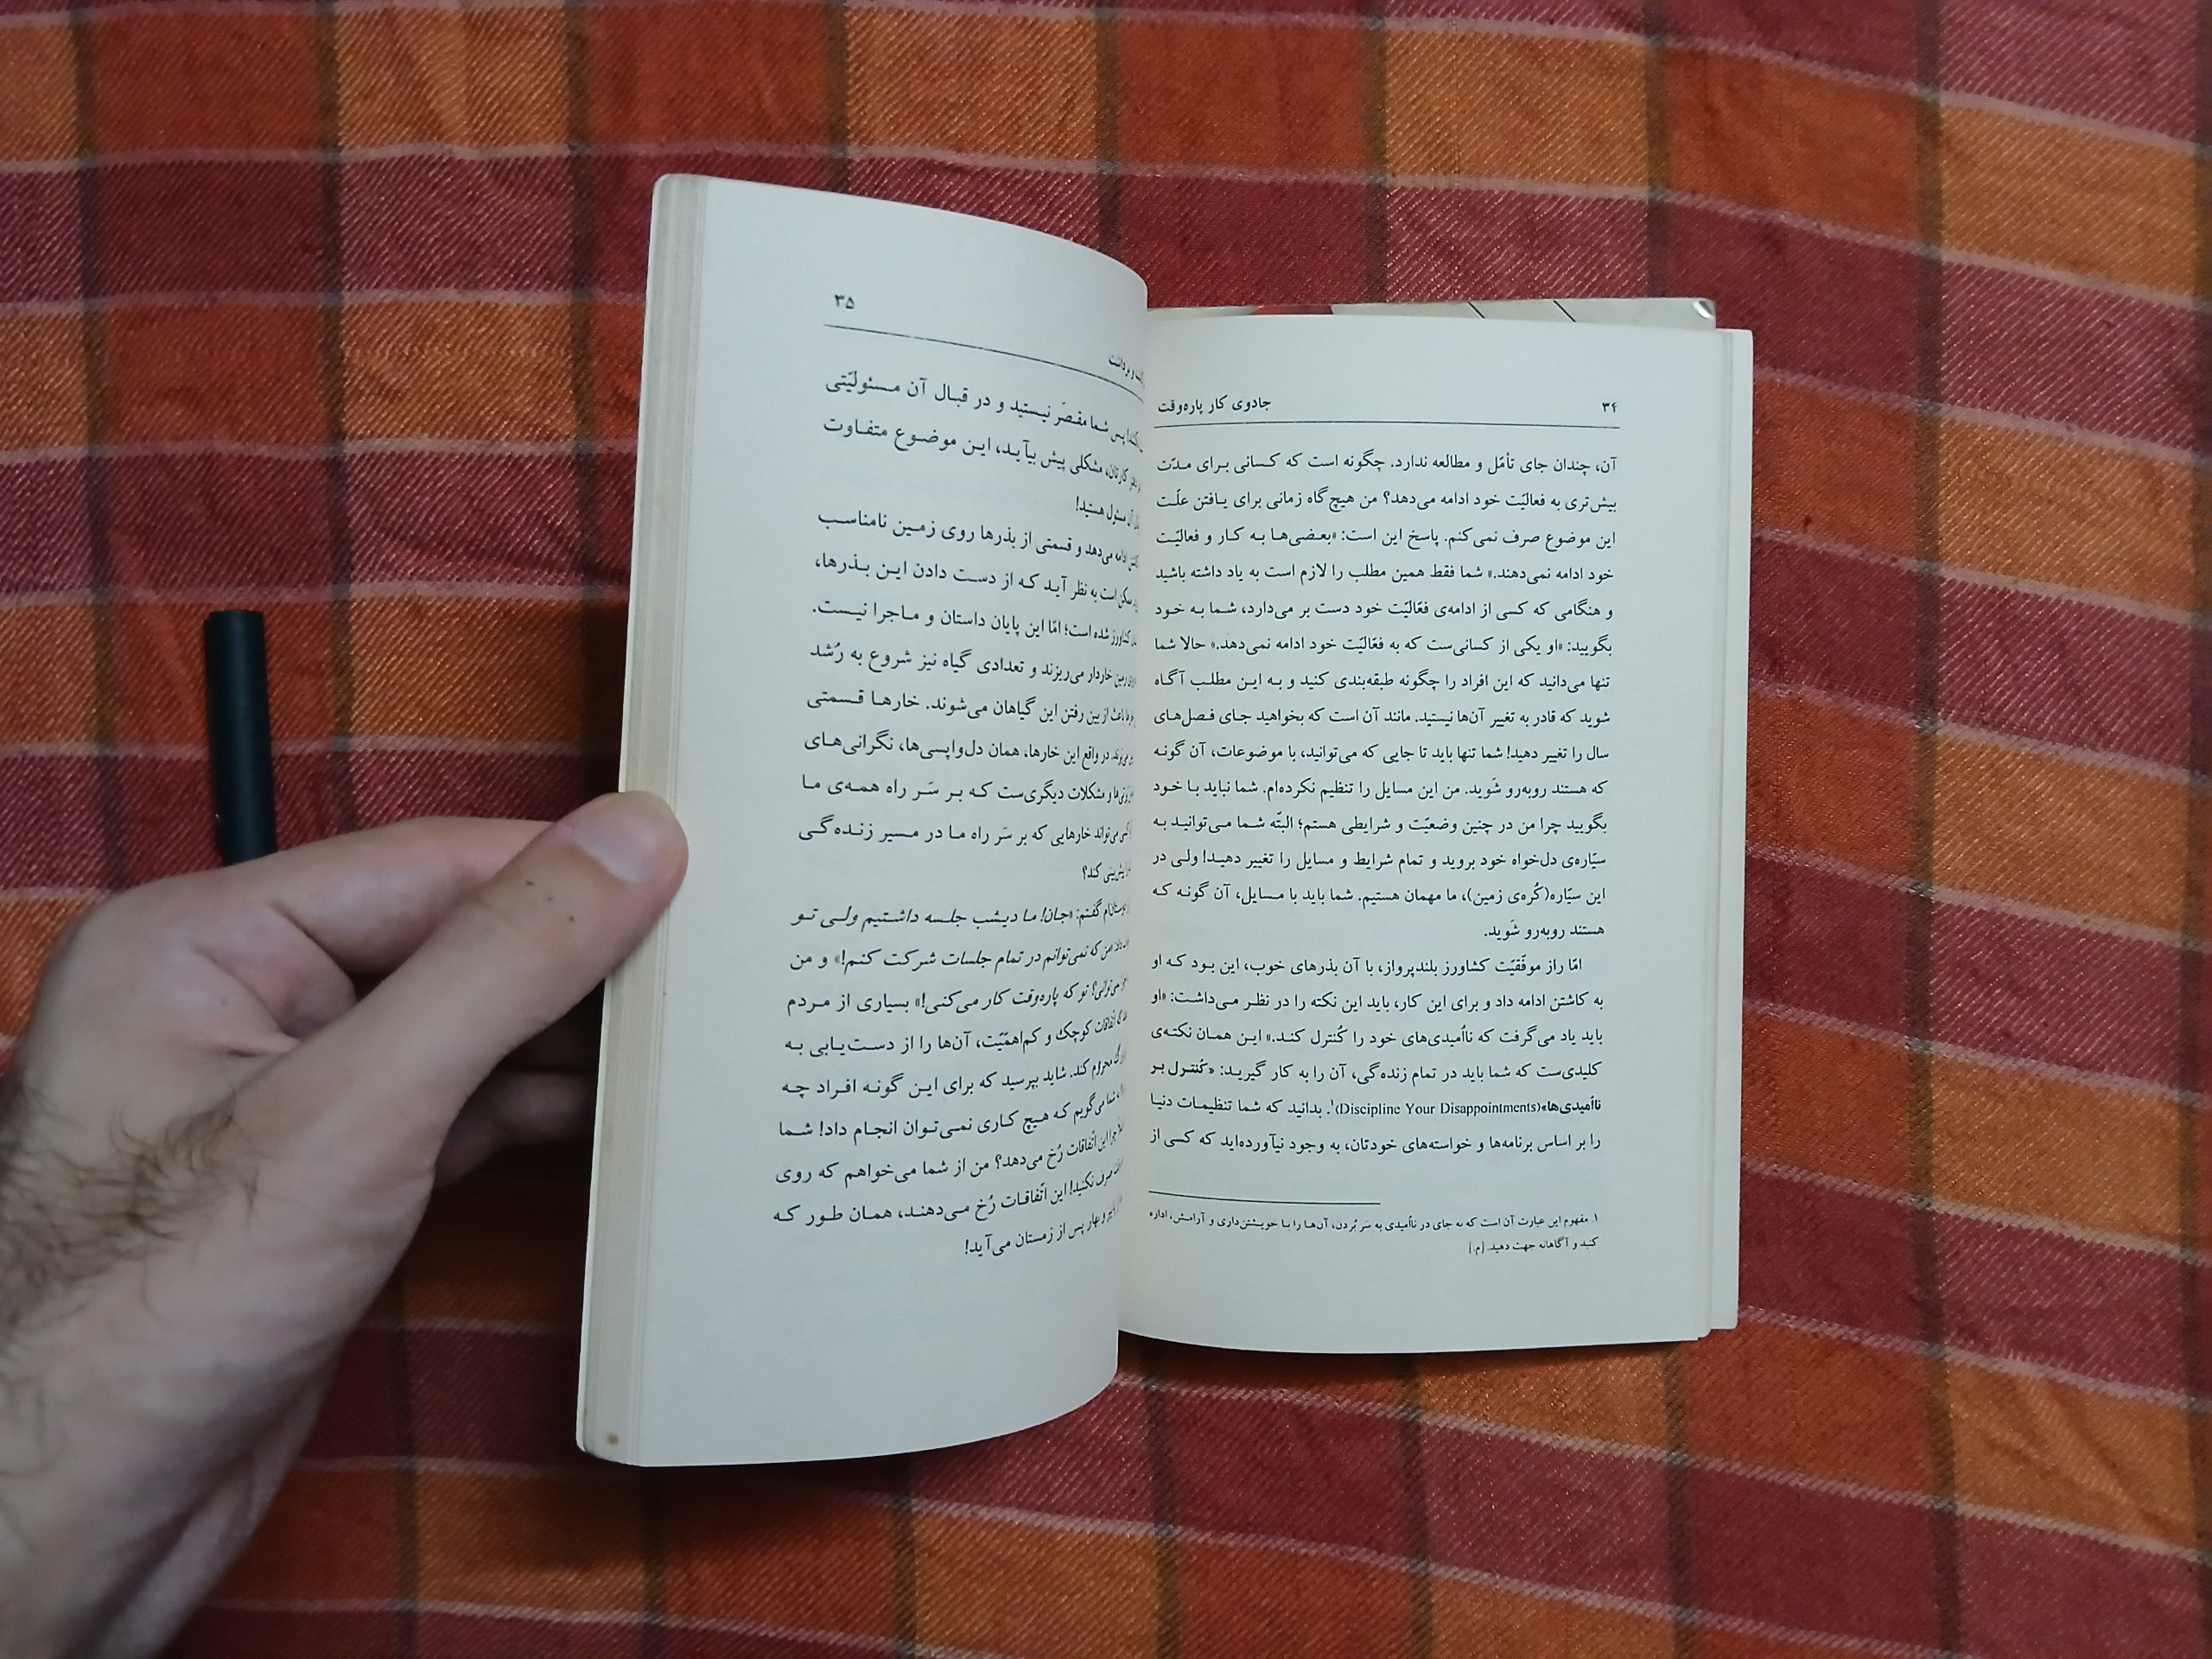 ۳۴
جادوی کار پاره‌وقت
آن، چندان جای تأمّل و مطالعه ندارد. چگونه است که کسانی برای مدّت
بیش‌تری به فعالیّت خود ادامه می‌دهد؟ من هیچ‌گاه زمانی برای یافتن علّت
این موضوع صرف نمی‌کنم. پاسخ این است: «بعضی‌ها به کار و فعالیّت
خود ادامه نمی‌دهند.» شما فقط همین مطلب را لازم است به یاد داشته باشید
و هنگامی که کسی از ادامه‌ی فعّالیّت خود دست بر می‌دارد، شما به خود
بگویید: «او یکی از کسانی‌ست که به فعّالیّت خود ادامه نمی‌دهد.» حالا شما
تنها می‌دانید که این افراد را چگونه طبقه‌بندی کنید و به این مطلب آگاه
شوید که قادر به تغییر آن‌ها نیستید. مانند آن است که بخواهید جای فصل‌های
سال را تغییر دهید! شما تنها باید تا جایی که می‌توانید، با موضوعات، آن گونه
که هستند روبه‌رو شَوید. من این مسایل را تنظیم نکرده‌ام. شما نباید با خود
بگویید چرا من در چنین وضعیّت و شرایطی هستم؛ البتّه شما می‌توانید به
سیّاره‌ی دل‌خواه خود بروید و تمام شرایط و مسایل را تغییر دهید! ولی در
این سیّاره(کُره‌ی زمین)، ما مهمان هستیم. شما باید با مسایل، آن گونه که
هستند روبه‌رو شَوید.
امّا راز موفّقیّت کشاورز بلندپرواز، با آن بذرهای خوب، این بود که او
به کاشتن ادامه داد و برای این کار، باید این نکته را در نظر می‌داشت: «او
باید یاد می‌گرفت که ناُامیدی‌های خود را کُنترل کند.» این همان نکته‌ی
کلیدی‌ست که شما باید در تمام زنده‌گی، آن را به کار گیرید: «کُنترل بر
ناُامیدی‌ها»(Discipline Your Disappointments)¹. بدانید که شما تنظیمات دنیا
را بر اساس برنامه‌ها و خواسته‌های خودتان، به وجود نیآورده‌اید که کسی از
۱. مفهوم این عبارت آن است که به جای در ناُامیدی به سَر بُردن، آن‌ها را با خویشتن‌داری و آرامش، اداره
کنید و آگاهانه جهت دهید. [م.]
۳۵
برداشت
پس شما مقصّر نیستید و در قبال آن مسئولیّتی
کارتان، مشکلی پیش بیآید، این موضوع متفاوت
آن مسئول هستید!
ادامه می‌دهد و قسمتی از بذرها روی زمین نامناسب
ممکن است به نظر آید که از دست دادن این بذرها،
کشاورز شده است؛ امّا این پایان داستان و ماجرا نیست.
زمین خاردار می‌ریزند و تعدادی گیاه نیز شروع به رُشد
باعث از بین رفتن این گیاهان می‌شوند. خارها قسمتی
در واقع این خارها، همان دل‌واپسی‌ها، نگرانی‌های
و مشکلات دیگری‌ست که بر سَر راه همه‌ی ما
می‌تواند خارهایی که بر سَر راه ما در مسیر زنده‌گی
پیش‌بینی کند؟
گفتم: «جان! ما دیشب جلسه داشتیم ولی تو
من که نمی‌توانم در تمام جلسات شرکت کنم!» و من
می‌توانی؟ تو که پاره‌وقت کار می‌کنی!» بسیاری از مردم
اتّفاقات کوچک و کم‌اهمّیّت، آن‌ها را از دست‌یابی به
محروم کند. شاید بپرسید که برای این گونه افراد چه
شما می‌گویم که هیچ کاری نمی‌توان انجام داد! شما
چرا این اتّفاقات رُخ می‌دهد؟ من از شما می‌خواهم که روی
صرف نکنید! این اتّفاقات رُخ می‌دهند، همان طور که
و بهار پس از زمستان می‌آید!